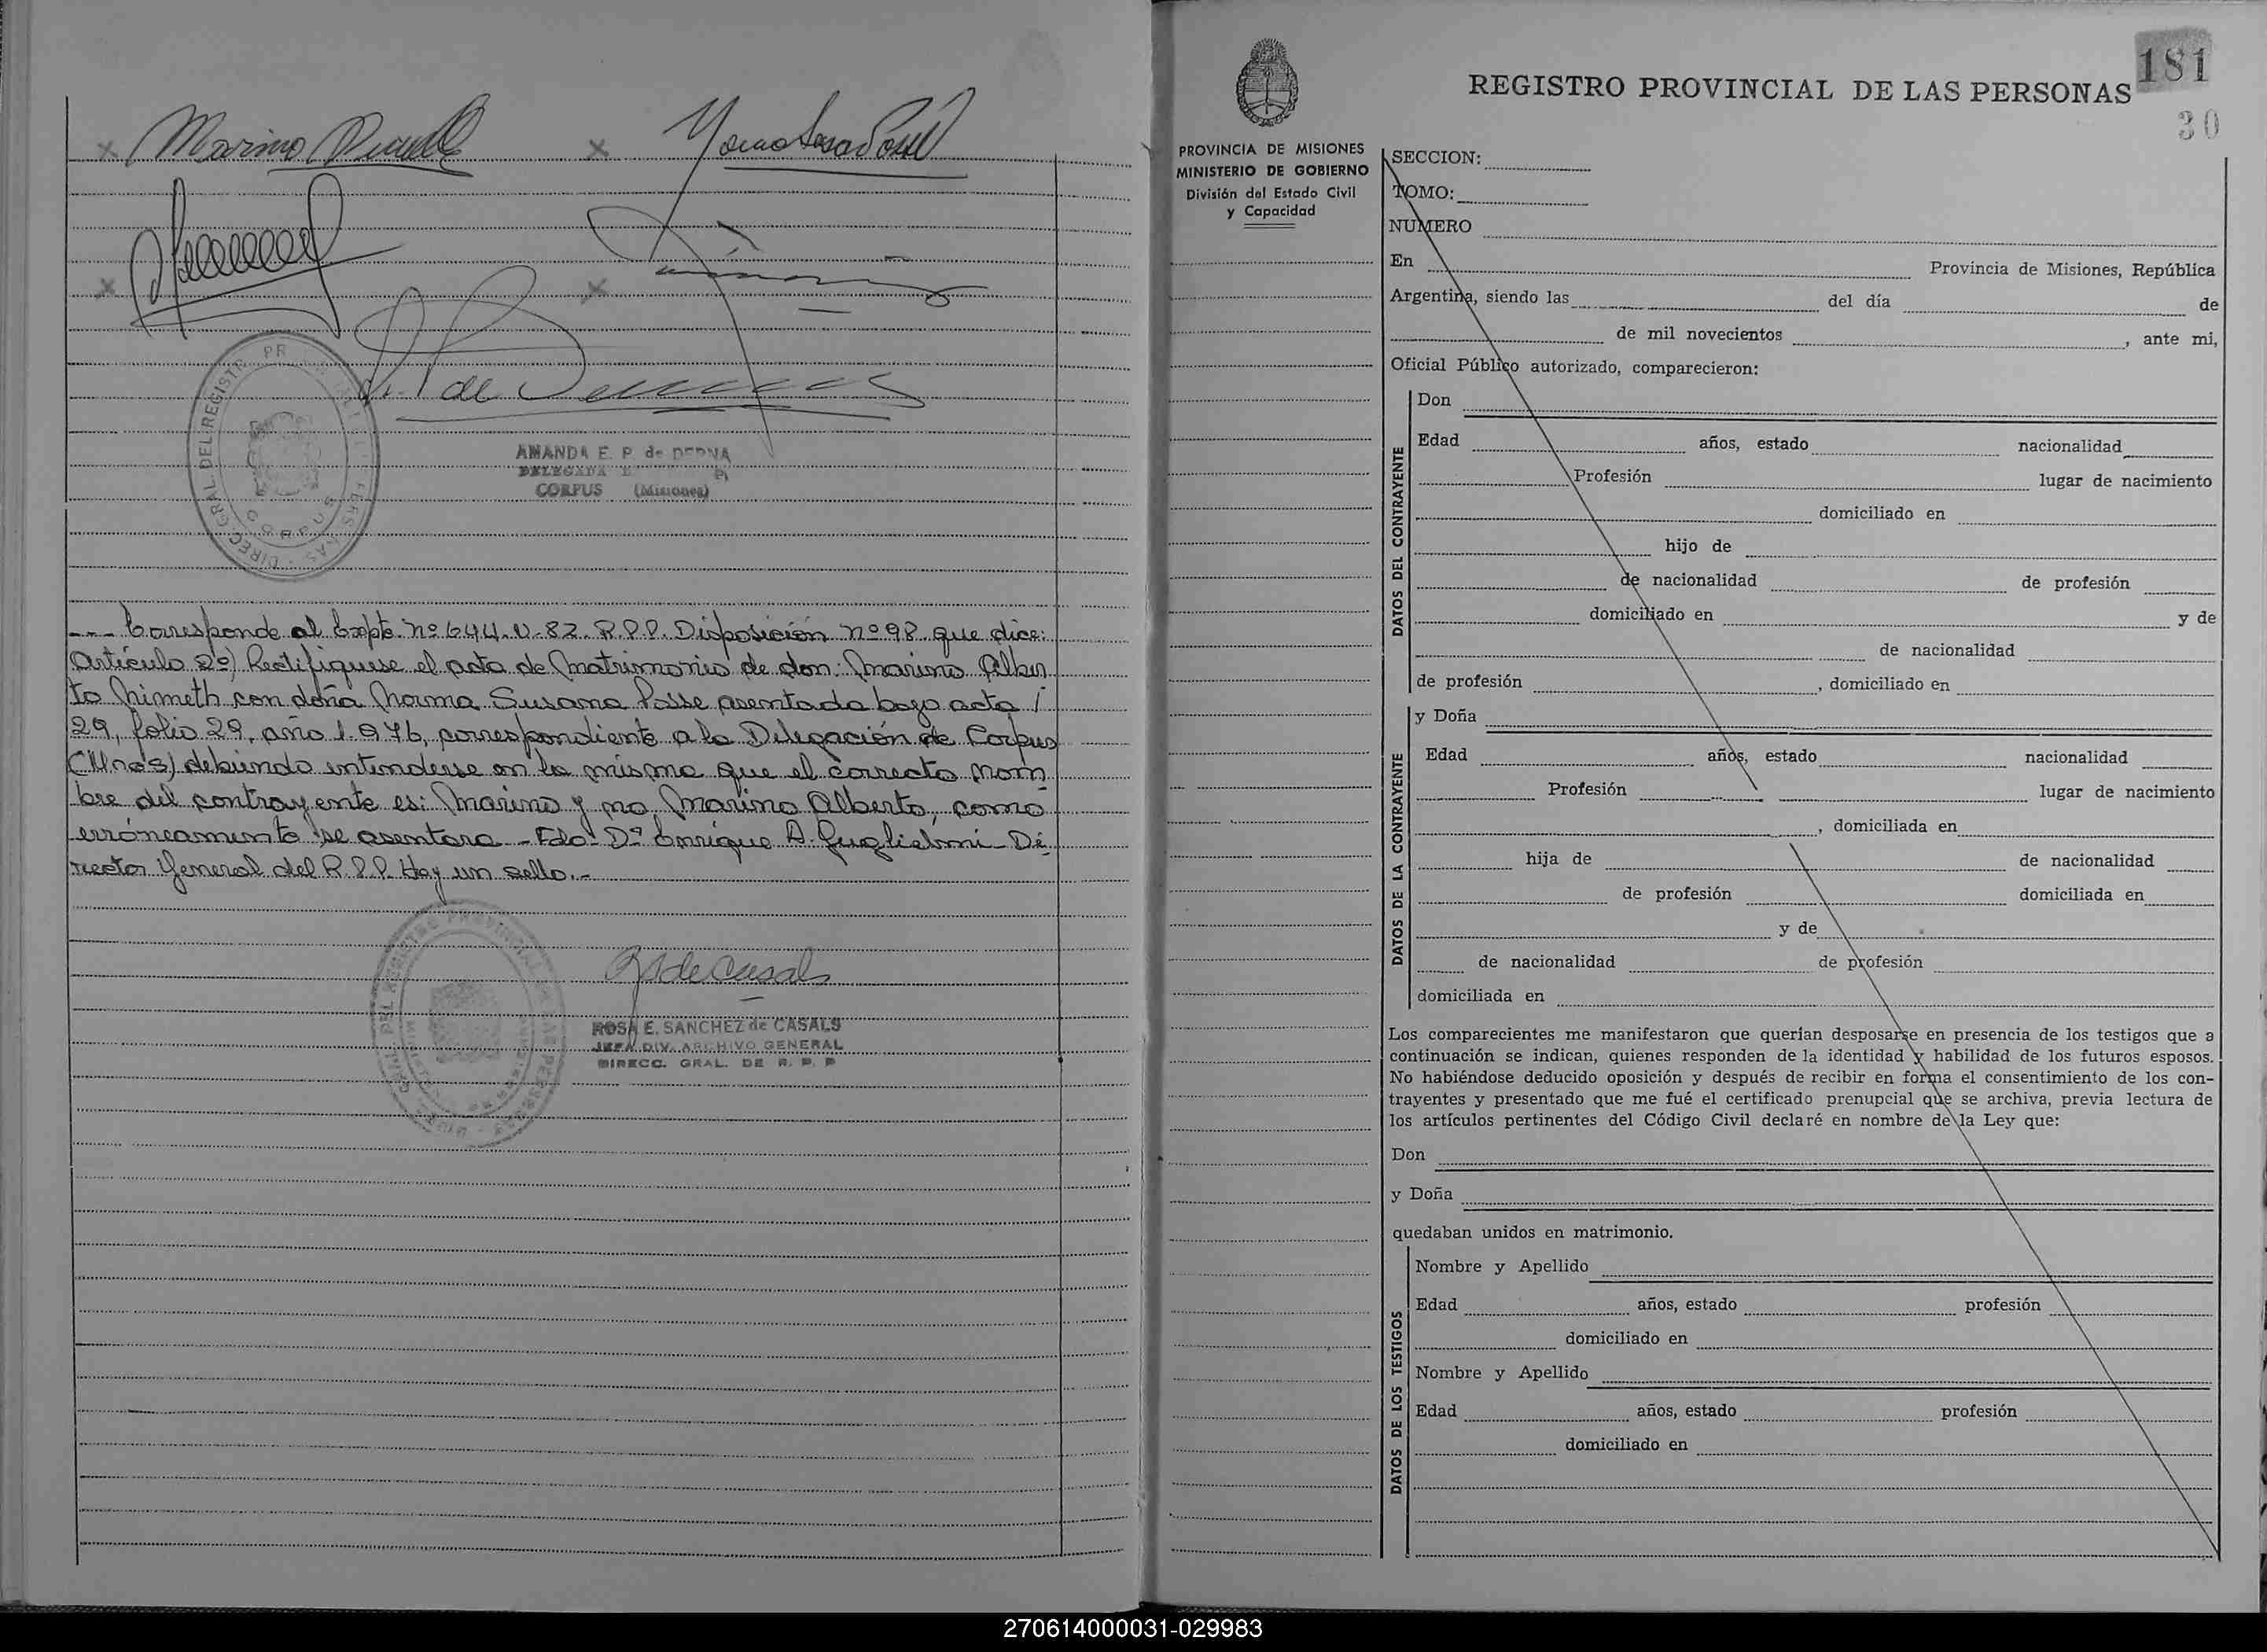 AMANDA E. P. de
DELEGADA
CORPUS (Misiones)
--- Corresponde al Expte. nº 644-N-82-R.P.P. Disposición nº 98. que dice:
Artículo 2º) Rectifíquese el acta de Matrimonio de don: Marino Alber
to Nimeth con doña Norma Susana Posse asentada bajo acta /
29, folio 29, año 1.976, correspondiente a la Delegación de Corpus
(Mnes) debiendo entenderse en la misma que el correcto nom
bre del contrayente es: Marino y no, Marino Alberto, como
erróneamente se asentara - Fdo. Dº Enrique A. Guglielmi - Di
rector General del R.P.P. Hay un sello.-
ROSA E. SANCHEZ de CASALS
JEFA DIV. ARCHIVO GENERAL
DIRECC. GRAL. DE R. P. P
181
REGISTRO PROVINCIAL DE LAS PERSONAS
30
PROVINCIA DE MISIONES
MINISTERIO DE GOBIERNO
División del Estado Civil
y Capacidad
SECCION:
TOMO:
NUMERO
En Provincia de Misiones, República
Argentina, siendo las del día de
de mil novecientos , ante mi,
Oficial Público autorizado, comparecieron:
DATOS DEL CONTRAYENTE
Don
Edad años, estado nacionalidad
Profesión lugar de nacimiento
domiciliado en
hijo de
de nacionalidad de profesión
domiciliado en y de
de nacionalidad
de profesión , domiciliado en
DATOS DE LA CONTRAYENTE
y Doña
Edad años, estado nacionalidad
Profesión lugar de nacimiento
, domiciliada en
hija de de nacionalidad
de profesión domiciliada en
y de
de nacionalidad de profesión
domiciliada en
Los comparecientes me manifestaron que querían desposarse en presencia de los testigos que a
continuación se indican, quienes responden de la identidad y habilidad de los futuros esposos.
No habiéndose deducido oposición y después de recibir en forma el consentimiento de los con-
trayentes y presentado que me fué el certificado prenupcial que se archiva, previa lectura de
los artículos pertinentes del Código Civil declaré en nombre de la Ley que:
Don
y Doña
quedaban unidos en matrimonio.
DATOS DE LOS TESTIGOS
Nombre y Apellido
Edad años, estado profesión
domiciliado en
Nombre y Apellido
Edad años, estado profesión
domiciliado en
270614000031-029983